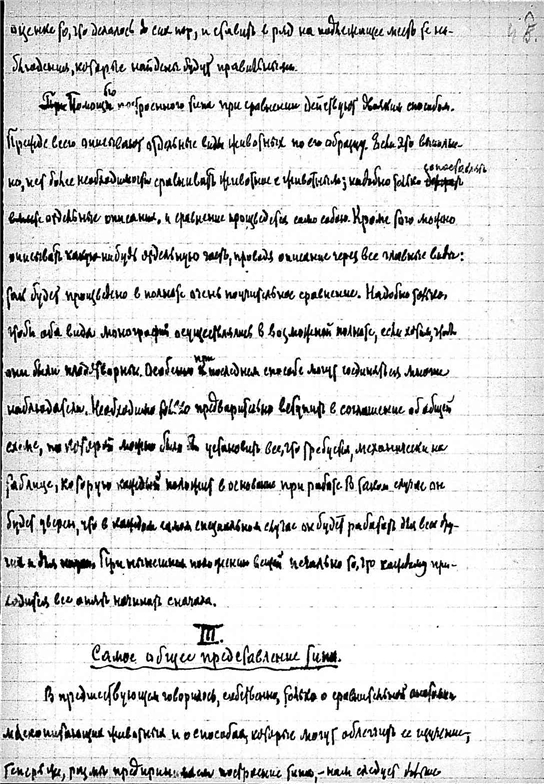 оценке то, что делалось до сих пор, и ставить в ряд на подлежащее место те на-
блюдения, которые найдены будут правильными.
При помощи построенного типа при сравнении действуют двояким способом.
Прежде всего описывают отдельные виды животных по его образцу. Если это выполне-
но, нет более необходимости сравнивать животное с животным; надобно только сопоставить
отдельные описания, и сравнение произведется само собою. Кроме того можно
описывать какую-нибудь отдельную часть, проведя описание через все главные виды:
так будет произведено в полноте очень поучительное сравнение. Надобно только,
чтобы оба вида монографий осуществлялись в возможной полноте, если хотят, чтоб
они были плодотворны. Особенно при последнем способе могут соединяться многие
наблюдатели. Необходимо было предварительно вступить в соглашение об общей
схеме, по которой можно было установить все, что требуется, механически на
таблице, которую каждый положил в основание при работе. В таком случае он
будет уверен, что в каждом самом специальном случае он будет работать для всех дру-
гих и для науки. При нынешнем положении вещей печально то, что каждому при-
ходится все опять начинать сначала.
III.
Самое общее представление типа.
В предшествующем говорилось, собственно, только о сравнительной анатомии
млекопитающих животных и о способах, которые могут облегчить ее изучение;
теперь же, раз мы предприняли построение типа, – нам следует